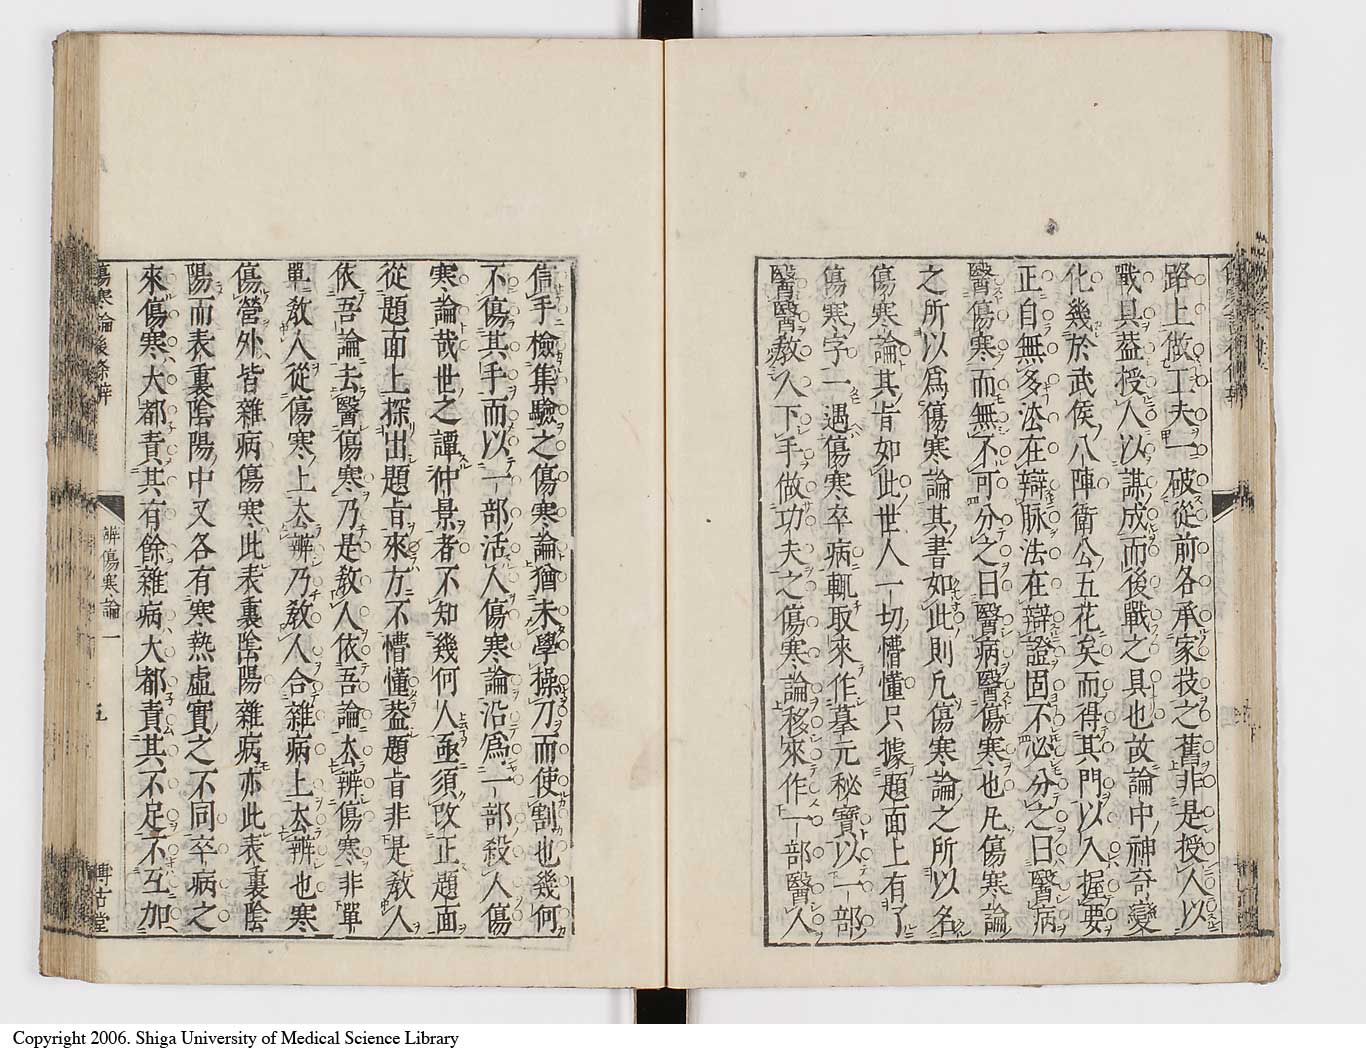 路上做工夫一破從前各承家技之舊非是授人以
戰具葢授人以謀成而後戰之具也故論中神奇變
化幾於武侯八陣衛公五花矣而得其門以入握要
正自無多法在辯脉法在辯證固不必分之曰醫病
醫傷寒而無不可分之曰醫病醫傷寒也凡傷寒論
之所以爲傷寒論其書如此則凡傷寒論之所以名
傷寒論其旨如此世人一切懵懂只據題面上有了
傷寒字一遇傷寒卒病輒取來作摹元秘寶以一部
醫醫敎人下手做功夫之傷寒論移來作一部醫人
信手檢集驗之傷寒論猶未學操刀而使割也幾何
不傷其手而以一部活人傷寒論沿爲一部殺人傷
寒論哉世之譚仲景者不知幾何人亟須改正題面
從題面上探出題旨來方不懵懂葢題旨非是敎人
依吾論去醫傷寒乃是敎人依吾論去辨傷寒非單
單敎人從傷寒上去辨乃敎人合雜病上去辨也寒
傷營外皆雜病傷寒此表裏陰陽雜病亦此表裏陰
陽而表裏陰陽中又各有寒熱虛實之不同卒病之
來傷寒大都責其有餘雜病大都責其不足不互加
傷寒論後條辨
辨傷寒論一
五
博古堂
Copyright 2006. Shiga University of Medical Science Library